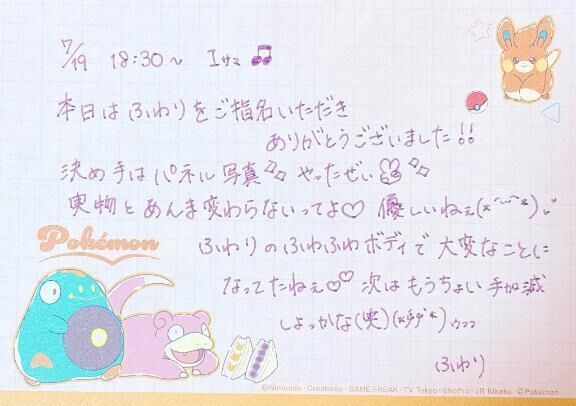 7/19 18:30~ Iサマ
本日はふわりをご指名いただき
ありがとうございました!!
決め手はパネル写真 やったぜい
実物とあんま変わらないってよ♡ 優しいねぇ(*^~^*)
Pokémon
ふわりのふわふわボディで大変なことに
なってたねぇ♡♡ 次はもうちょい手加減
しよっかな(笑)
ふわり
©Nintendo・Creatures・GAME FREAK・TV Tokyo・ShoPro・JR Kikaku ©Pokémon